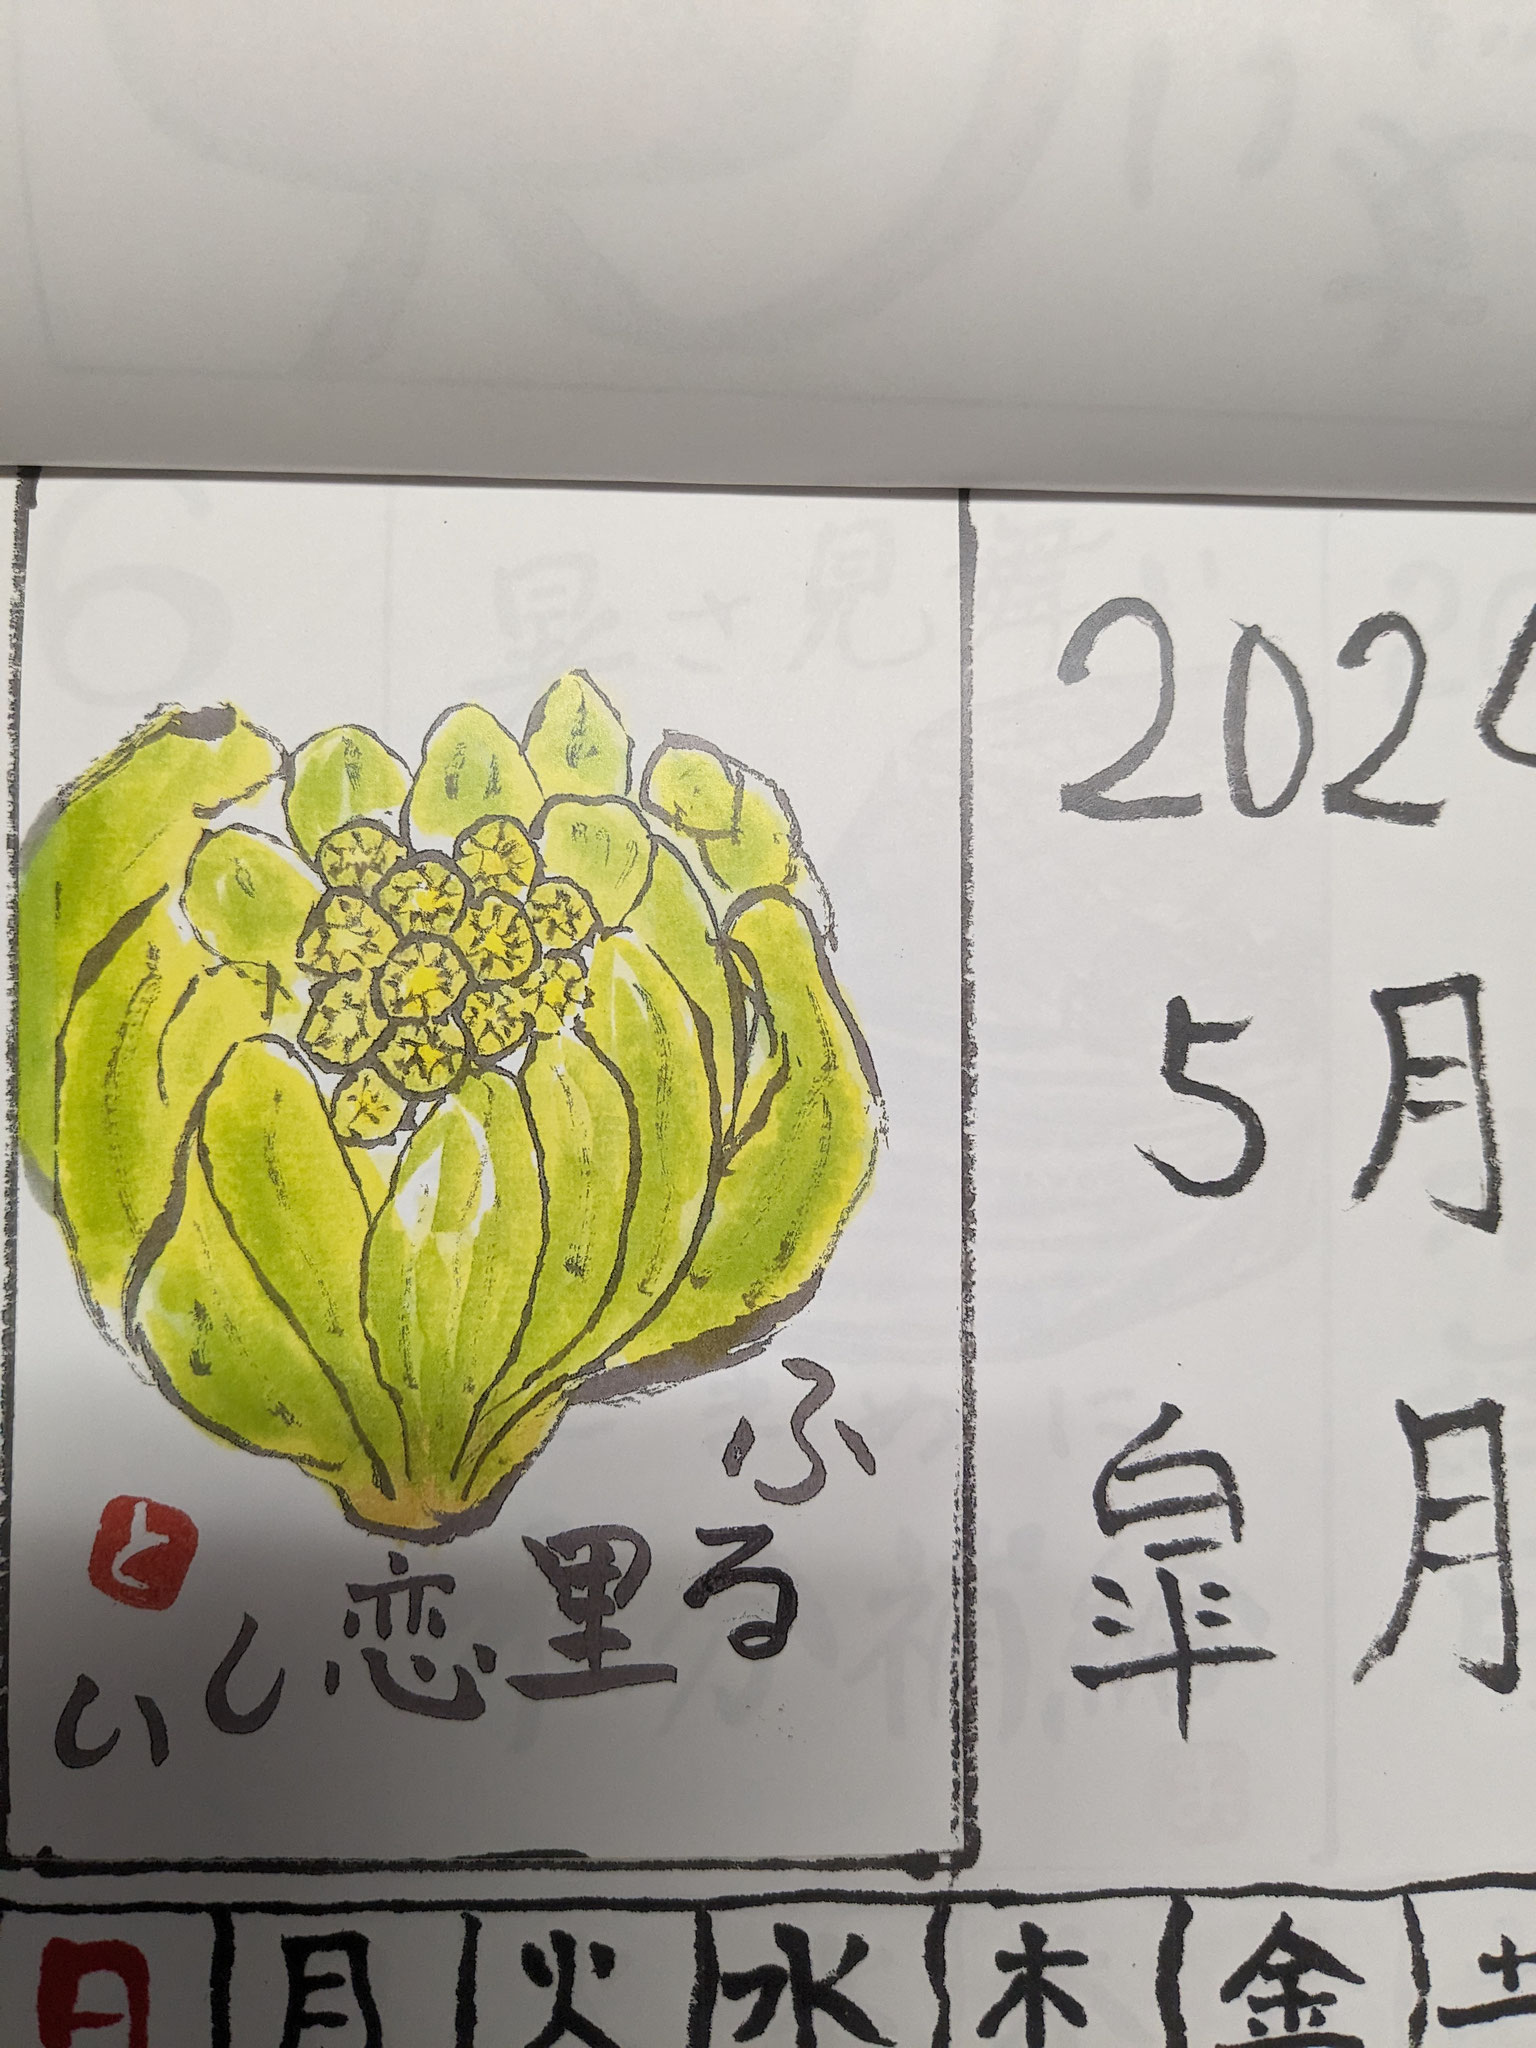 202
5月
皐月
ふる里恋しい
と
日 月 火 水 木 金 土